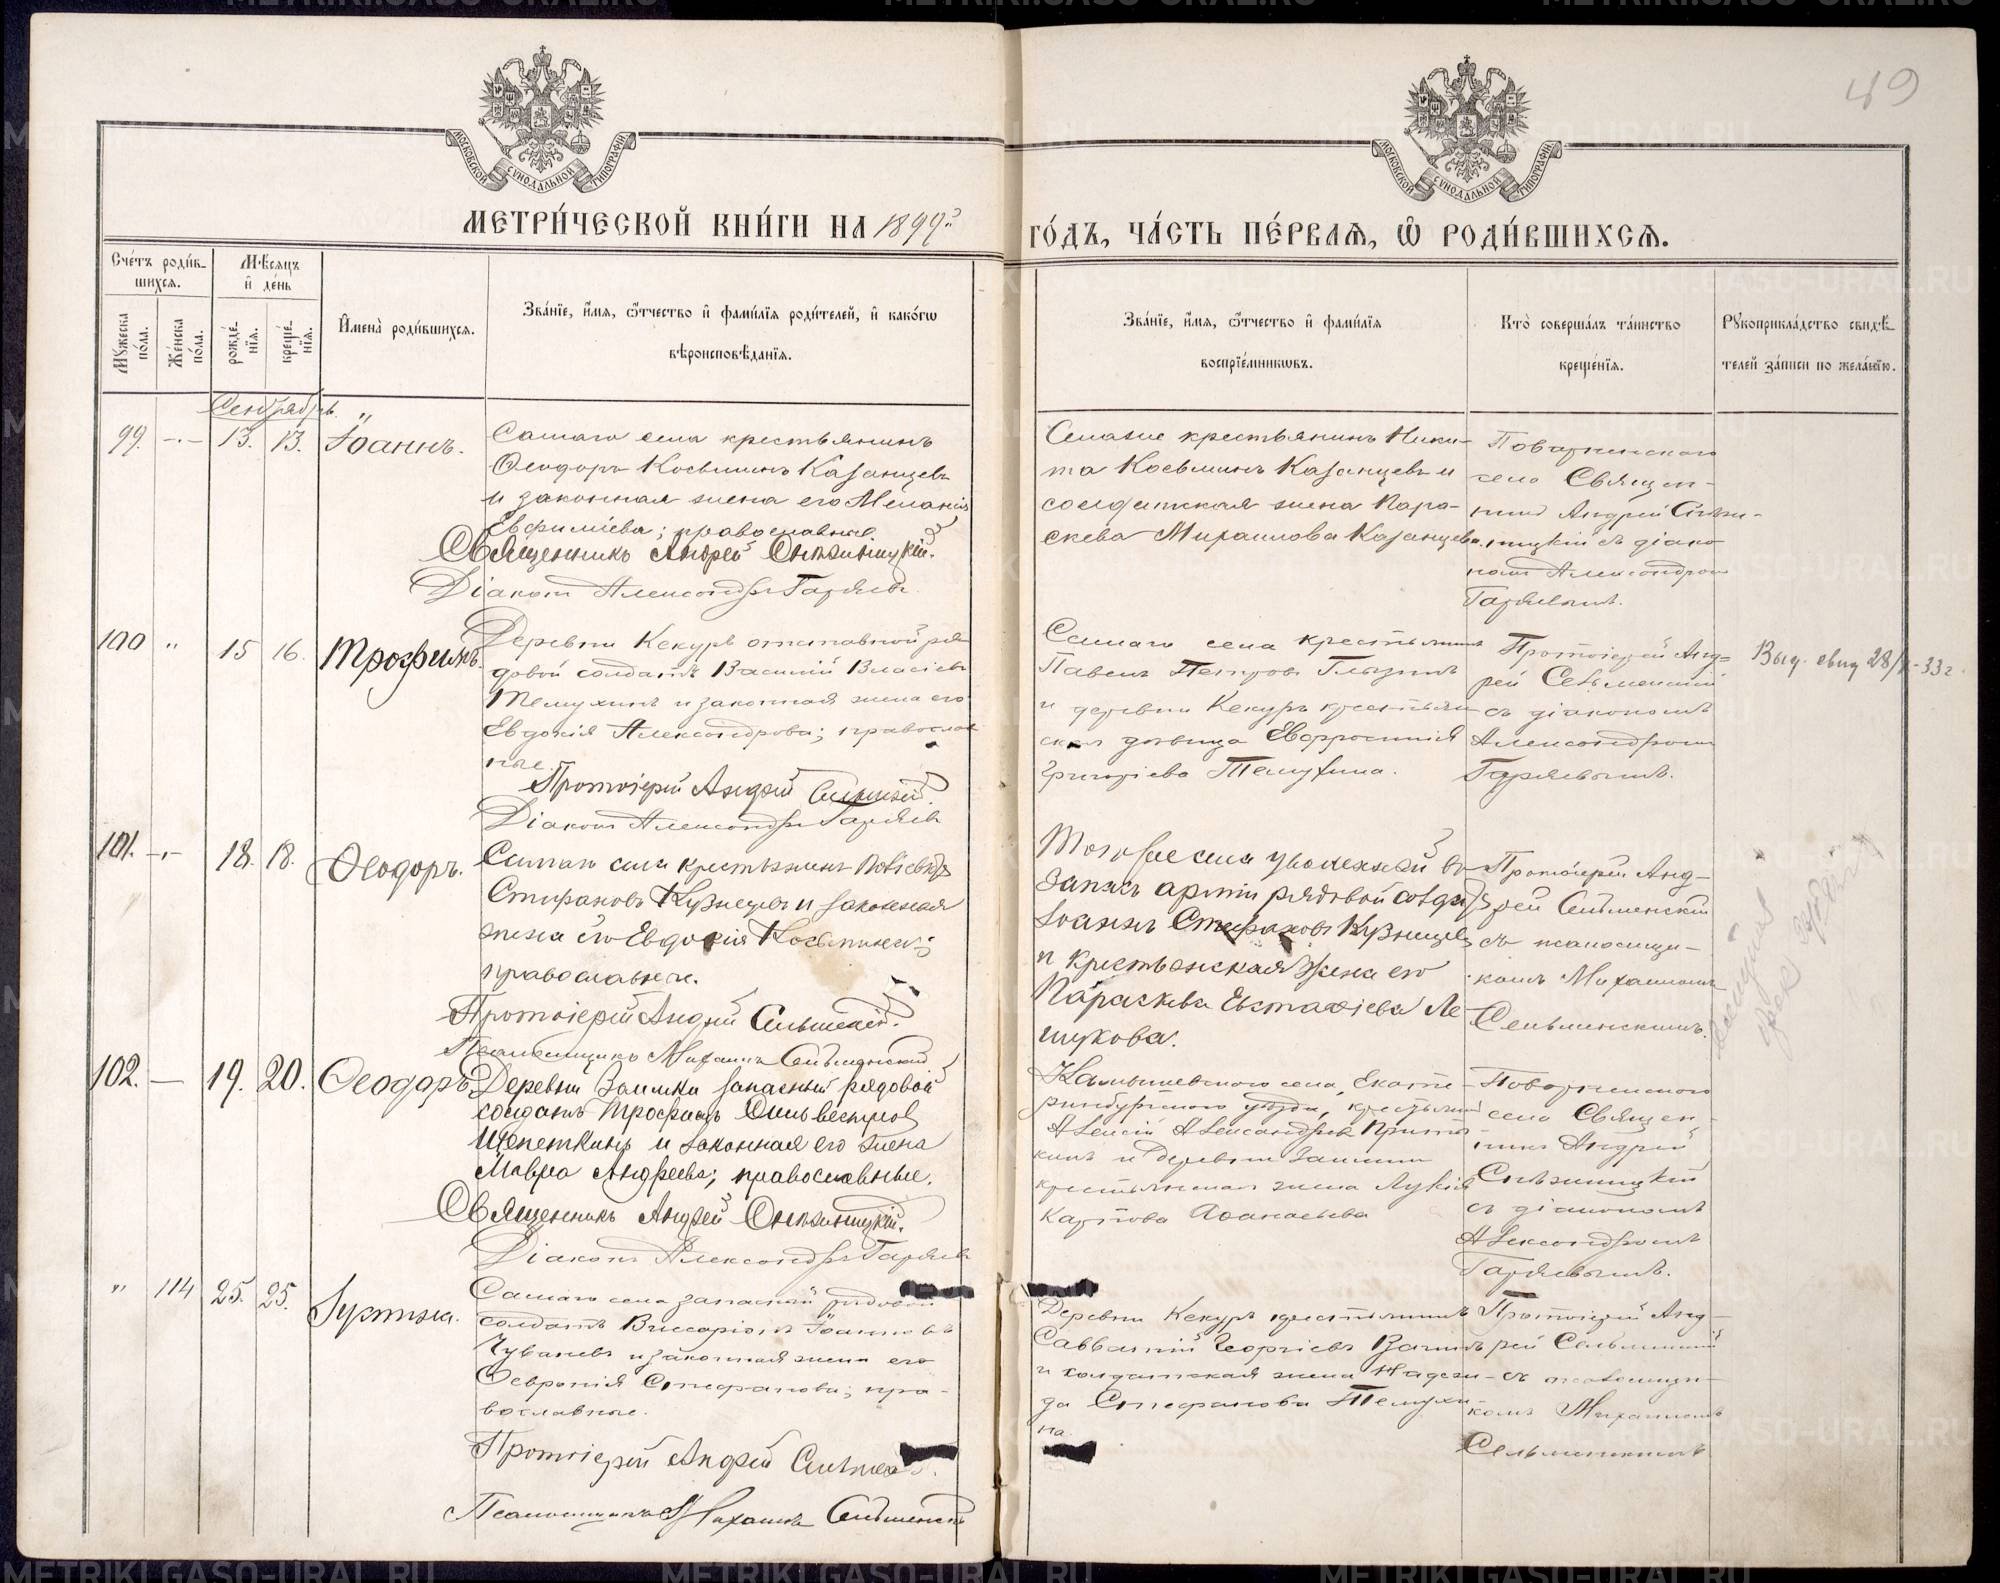 49
МОСКОВСКОЙ СУНОДАЛЬНОЙ ТИПОГРАФИИ
МОСКОВСКОЙ СУНОДАЛЬНОЙ ТИПОГРАФИИ
МЕТРИ́ЧЕСКОЙ КНИ́ГИ НА 1899 ГО́ДЪ, ЧА́СТЬ ПЕ́РВАѦ, Ѡ РОДИ́ВШИХСѦ.
Сче́тъ роди́в-
шихсѧ.
Мѣ́сѧцъ
и де́нь
Мꙋжеска по́ла.
Же́нска по́ла.
рожде́-
нїѧ.
креще́-
нїѧ.
Имена̀ роди́вшихсѧ.
Зва́нїе, и́мѧ, ѻ҆́тчество и фами́лїѧ роди́телей, и како́гѡ
вѣроисповѣ́данїѧ.
Зва́нїе, и́мѧ, ѻ҆́тчество и фами́лїѧ
воспрїе́мникѡвъ.
Кто̀ соверша́лъ та́инство
креще́нїѧ.
Рꙋкоприкла́дство свидѣ́-
телей за́писи по жела́нїю.
Сентябрь
99. -.- 13. 13. Іоаннъ.
Самаго села крестьянинъ
Ѳеодоръ Косьминъ Казанцевъ
и законная жена его Меланія
Евфиміева; православные.
Священникъ Андрей Снѣжницкій.
Діаконъ Александръ Гаряевъ.
Самаго села крестьянинъ Ники-
та Косьминъ Казанцевъ и
солдатская жена Пара-
скева Михаилова Казанцева.
Поварненского
села Священ-
никъ Андрей Снѣж-
ницкій съ діако
номъ Александромъ
Гаряевымъ.
100 " 15 16. Трофимъ.
Деревни Кекуръ отставной ря
довой солдатъ Василій Власіевъ
Темухинъ и законная жена его
Евдокія Александрова; православ
ные.
Протоіерей Андрей Сельменскій.
Діаконъ Александръ Гаряевъ
Самаго села крестьянинъ
Павелъ Петровъ Глызинъ
и деревни Кекуръ крестьян
ская дѣвица Евфросинія
Григоріева Темухина.
Протоіерей Анд-
рей Сельменскій
съ діакономъ
Александромъ
Гаряевымъ.
Выд. свид 28/X-33г.
101. -,- 18. 18. Ѳеодоръ.
Самаго села крестьянинъ
Стефановъ Кузнецовъ и законная
жена его Евдокія Косьмина;
православные.
Протоіерей Андрей Сельменскій.
Псаломщикъ Михаилъ Сельменскій
Того же села уволенный въ
запасъ арміи рядовой солдатъ
Іоаннъ Стефановъ Кузнецовъ
и крестьянская жена его
Параскева Евстафіева Ле
щукова.
Протоіерей Анд-
рей Сельменскій
съ псаломщи-
комъ Михаиломъ
Сельменскимъ.
102. — 19. 20. Ѳеодоръ
Деревни Заимки запасный рядовой
солдатъ Трофимъ Сильвестровъ
Щепеткинъ и законная его жена
Мавра Андреева; православные.
Священникъ Андрей Снѣжницкій.
Діаконъ Александръ Гаряевъ
Камышевского села, Екате-
ринбургского уѣзда, крестьянинъ
Алексій Александровъ
кинъ и деревни Заимки
крестьянская жена Лукія
Карпова Афанасьева
Поварненского
села Священ
никъ Андрей
Снѣжницкій
съ діакономъ
Александромъ
Гаряевымъ.
" 114 25. 25. Іустина.
Самаго села запасный рядовой
солдатъ Виссаріонъ Іоанновъ
Чуваневъ и законная жена его
Февронія Стефанова; пра-
вославные.
Протоіерей Андрей
Псаломщикъ Михаилъ Сельменскій
Деревни Кекуръ крестьянинъ
Савватій Георгіевъ
и солдатская жена Надеж-
да Стефанова Темухи
на.
Протоіерей Анд-
рей Сельменскій
съ псаломщи-
комъ Михаиломъ
Сельменскимъ
METRIKI.GASO-URAL.RU